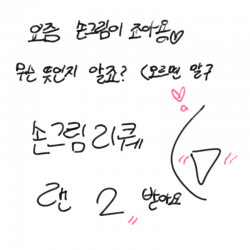 요즘 손그림이 조아용♡
무슨 뜻인지 알죠? (모르면 말구
손그림 리퀘
랜 2 받아요